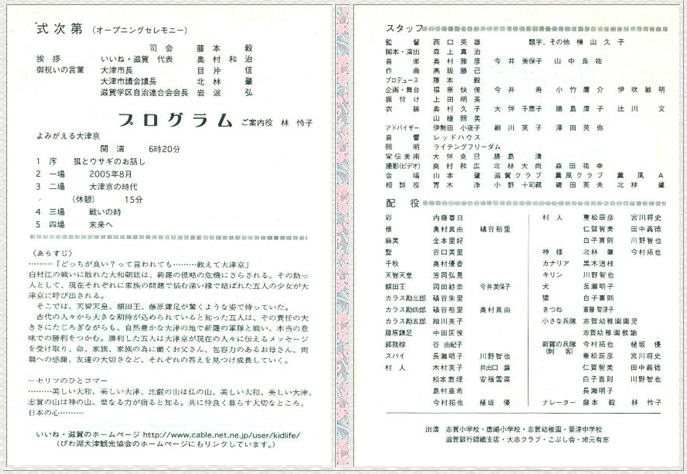 式次第 (オープニングセレモニー)
司会 藤本 毅
挨拶 いいね・滋賀 代表 奥村和治
御祝いの言葉 大津市長 目片 信
大津市議会議長 北林 肇
滋賀学区自治連合会会長 岩波 弘
プログラム ご案内役 林 怜子
よみがえる大津京
開演 6時20分
1 序 狐とウサギのお話し
2 一場 2005年8月
3 二場 大津京の時代
(休憩) 15分
4 三場 戦いの時
5 四場 未来へ
〈あらすじ〉
………「どっちが良い?って言われても………教えて大津京」
白村江の戦いに敗れた大和朝廷は、新羅の侵略の危機にさらされる。その助っ
人として、現在それぞれに家族の問題で悩む深い縁で結ばれた五人の少女が大
津京に呼び出される。
そこでは、天智天皇、額田王、藤原鎌足が驚くような姿で待っていた。
古代の人々から大きな期待が込められていると知った五人は、その責任の大
きさにたじろぎながらも、自然豊かな大津の地で新羅の軍隊と戦い、本当の意
味での勝利をつかむ。勝利した五人は大津京が現在の人々に伝えるメッセージ
を受け取り、命、家族、家族の為に働くお父さん、包容力のあるお母さん、両
親への感謝、友達の大切さなど、それぞれの答えを見つけ成長する。
―セリフのひとコマ―
………美しい大和、美しい大津、比叡の山は仏の山、美しい大和、美しい大津、
志賀の山は神の山。聖なる力が宿ると知る。共に仲良く暮らす大切なところ、
日本の心………
いいね・滋賀のホームページ http://www.cable.net.ne.jp/user/kidlife/
(びわ湖大津観光協会のホームページにもリンクしています。)
スタッフ
監督 西口英雄 題字、その他 横山久子
脚本・演出 森上真治
音楽 奥村雅彦 今井美保子 山中良祐
作曲 高阪勝己
プロデュース 藤本 毅
企画・舞台 福原快俊 今井 寿 小竹庸介 伊吹敏明
振付け 上田明美
衣装 奥村久子 大伴千恵子 勝島康子 辻川 文
山極照美
アドバイザー 伊勢田小夜子 細川英子 澤田英弥
音響 レッドハウス
照明 ライティングフリーダム
宣伝美術 大伴克巳 勝島 清
撮影(ビデオ) 奥村和広 北林大尚 森田祐幸
会場 山本 肇 滋賀クラブ 薫風クラブ 薫風A
相談役 青木 浄 小野十司蔵 磯田英夫 北林 肇
配役
彩 内藤春日 村人 重松辰彦 宮川将史
椎 奥村真由 礒谷裕里 仁賀智美 田中義徳
麻美 金本里好 白子喜則 川野智也
聖 谷口美里 神様 北林 肇 今村拓也
千秋 奥村優香 カナリア 黒木道枝
天智天皇 芳岡弘晃 キリン 川野智也
額田王 岡田紗奈 今井美保子 犬 長瀬明子
カラス勘三郎 礒谷朱里 猿 白子喜則
カラス勘四郎 礒谷裕里 奥村真由 きつね 斎藤智津子
カラス勘五郎 稲川美子 小さな兵隊 志賀幼稚園園児
藤原鎌足 中田匡俊 志賀幼稚園教諭
郭務悰 谷由紀子 新羅の兵隊 今村拓也 植坂 優
スパイ 長瀬明子 川野智也 (刺客) 重松辰彦 宮川将史
村人 木村英子 井出口 誠 仁賀智美 田中義徳
松本恵理 安福雪菜 白子喜則 川野智也
島村亜希 長瀬明子
今村拓也 植坂 優 ナレーター 藤本 毅 林 怜子
出演 志賀小学校・唐崎小学校・志賀幼稚園・粟津中学校
滋賀銀行錦織支店・大志クラブ・こぶし会・地元有志